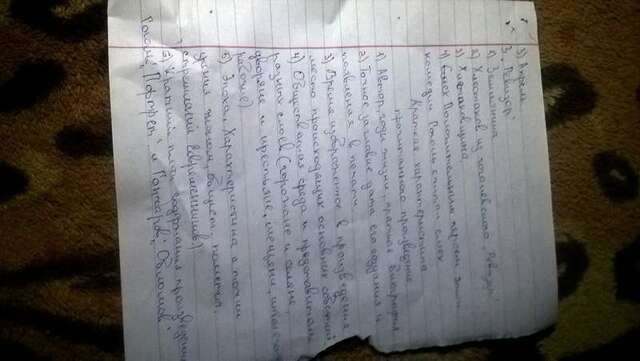 5) Апрель
3. „Ревизор"
1) Земляника
2) Хлестаков из гоголевского „Ревизор"
3) Хлестаковщина
4) Смех Положительным героем этой
комедии Гоголь считал смех
Краткая характеристика
прочитанного произведение
1) Автор, годы жизни, краткая биография
2) Точное заглавие дата его создания и
появления в печати
3) Время изображенное в произведения
место происходящих основных событий
4) Общественная среда и представители
разных слоев (горожане и селяне,
дворяне и крестьяне, мещане,
рабочие)
5) Эпоха. Характеристика с точки
зрения эконом, общест, политич.
стремлений современников)
6) Краткий план содержания произведение
Гоголь „Портрет" и Гончаров „Обломов"